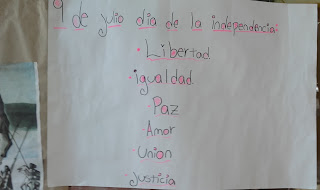 9 de julio dia de la independencia:
· Libertad.
· igualdad.
· Paz
· Amor
· Union
· Justicia